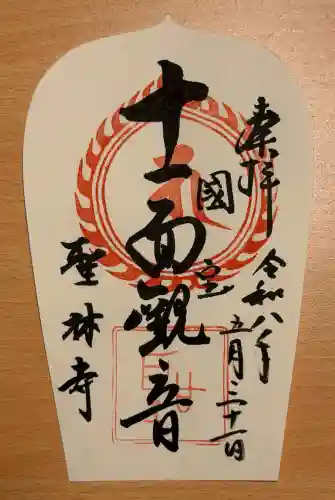 奉拝
令和八年
五月三十一日
國宝
十一面觀音
聖林寺